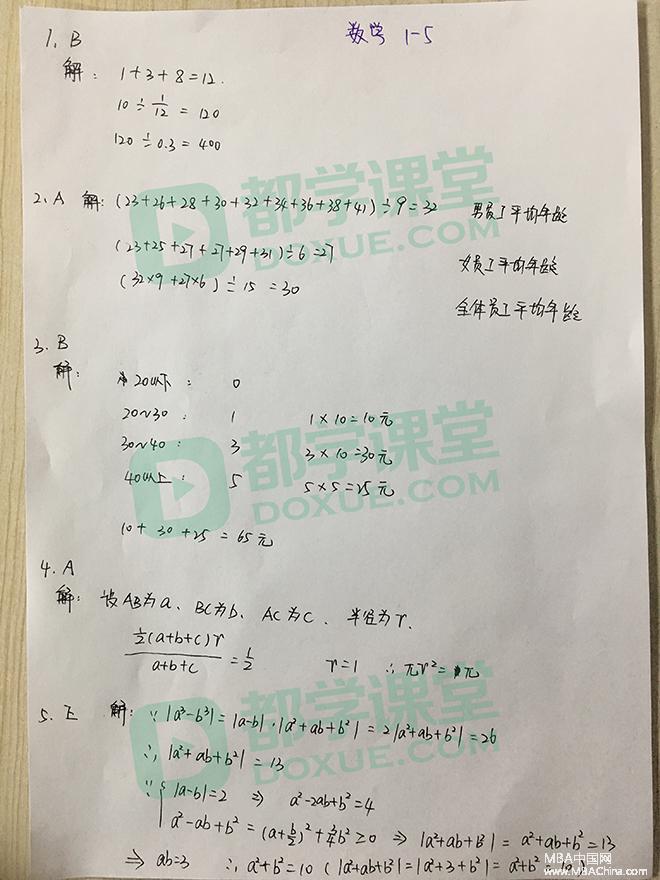 数学 1-5
1、B
解: 1+3+8=12.
10÷1/12=120
120÷0.3=400
2、A 解:(23+26+28+30+32+34+36+38+41)÷9=32 男员工平均年龄
(23+25+27+27+29+31)÷6=27 女员工平均年龄
(32×9+27×6)÷15=30 全体员工平均年龄
3、B
解: 20以下: 0
20~30: 1 1×10=10元
30~40: 3 3×10=30元
40以上: 5 5×5=25元
10+30+25=65元
4、A
解: 设AB为a、BC为b、AC为c、半径为r.
½(a+b+c)r/(a+b+c)=1/2 r=1 ∴πr²=π
5、E 解:∵|a³-b³|=|a-b|·|a²+ab+b²|=2|a²+ab+b²|=26
∴|a²+ab+b²|=13
∵{|a-b|=2 ⇒ a²-2ab+b²=4
a²-ab+b²=(a+b/2)²+¾b²≥0 ⇒ |a²+ab+b²|=a²+ab+b²=13
⇒ab=3 ∴a²+b²=10 (|a²+ab+b²|=|a²+3+b²|=a²+b²
都学课堂
DOXUE.COM
都学课堂
DOXUE.COM
都学课堂
DOXUE.COM
MBA中国网
www.MBAChina.com